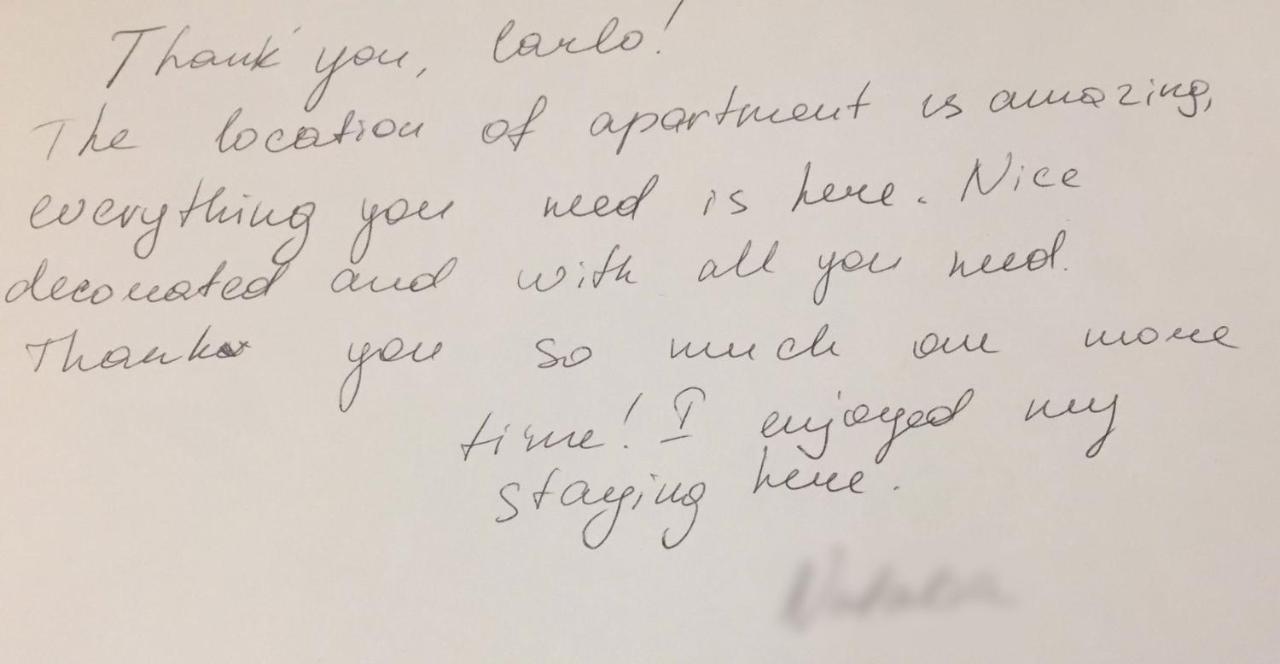 Thank you, Carlo!
The location of apartment is amazing,
everything you need is here. Nice
decorated and with all you need.
Thank you so much one more
time! I enjoyed my
staying here.